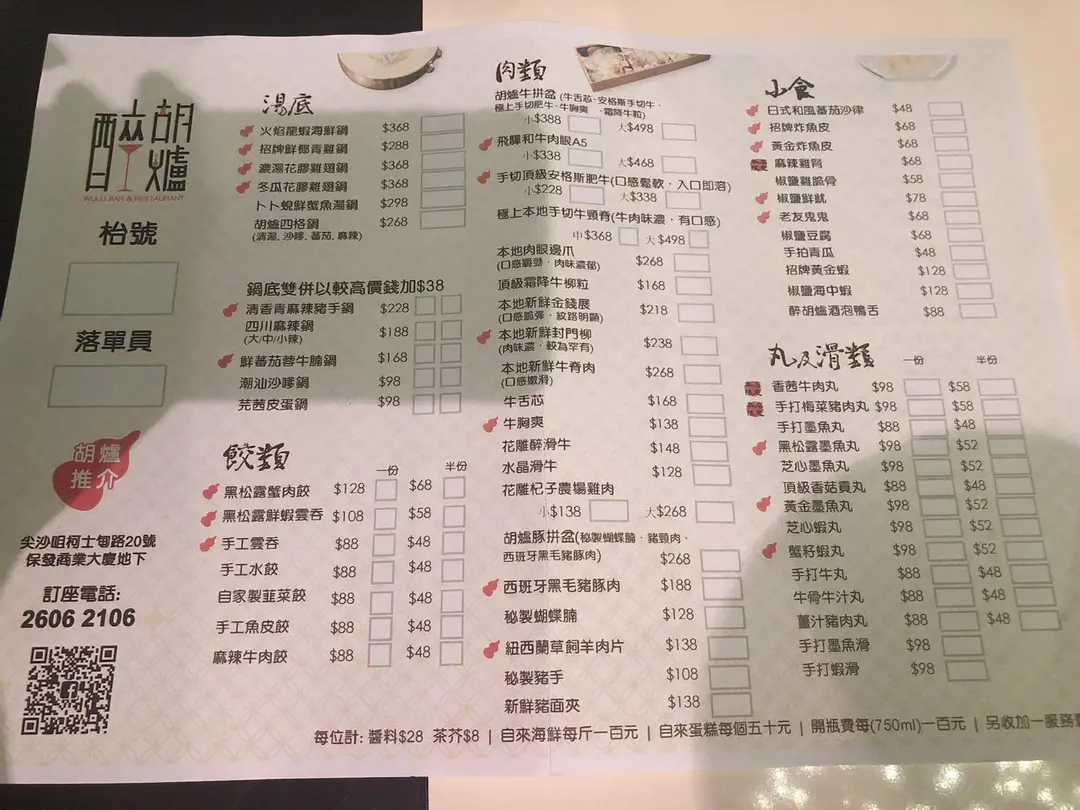 醉胡爐
WULU BAR & RESTAURANT
枱號
落單員
胡爐
推介
尖沙咀柯士甸路20號
保發商業大廈地下
訂座電話:
2606 2106
湯底
火焰龍蝦海鮮鍋 $368
招牌鮮椰青雞鍋 $288
濃湯花膠雞翅鍋 $368
冬瓜花膠雞翅鍋 $368
卜卜蜆鮮蟹魚湯鍋 $298
胡爐四格鍋 $268
(清湯, 沙嗲, 蕃茄, 麻辣)
鍋底雙併以較高價錢加$38
清香青麻辣豬手鍋 $228
四川麻辣鍋 $188
(大/中/小辣)
鮮蕃茄蓉牛腩鍋 $168
潮汕沙嗲鍋 $98
芫茜皮蛋鍋 $98
餃類 一份 半份
黑松露蟹肉餃 $128 $68
黑松露鮮蝦雲吞 $108 $58
手工雲吞 $88 $48
手工水餃 $88 $48
自家製韮菜餃 $88 $48
手工魚皮餃 $88 $48
麻辣牛肉餃 $88 $48
肉類
胡爐牛拼盆 (牛舌芯、安格斯手切牛、
極上手切肥牛、牛胸爽、霜降牛粒)
小$388 大$498
飛驒和牛肉眼A5
小$338 大$468
手切頂級安格斯肥牛(口感鬆軟，入口即溶)
小$228 大$338
極上本地手切牛頸脊(牛肉味濃，有口感)
中$368 大$498
本地肉眼邊爪 $268
(口感嚼勁，肉味濃郁)
頂級霜降牛柳粒 $168
本地新鮮金錢展 $218
(口感脆彈，紋路明顯)
本地新鮮封門柳 $238
(肉味濃，較為罕有)
本地新鮮牛脊肉 $268
(口感嫩滑)
牛舌芯 $168
牛胸爽 $138
花雕醉滑牛 $148
水晶滑牛 $128
花雕杞子農場雞肉
小$138 大$268
胡爐豚拼盆(秘製蝴蝶腩、豬頸肉、
西班牙黑毛豬豚肉) $268
西班牙黑毛豬豚肉 $188
秘製蝴蝶腩 $128
紐西蘭草飼羊肉片 $138
秘製豬手 $108
新鮮豬面夾 $138
小食
日式和風蕃茄沙律 $48
招牌炸魚皮 $68
黃金炸魚皮 $68
麻辣雞腎 $68
椒鹽雞脆骨 $58
椒鹽鮮魷 $78
老友鬼鬼 $68
椒鹽豆腐 $68
手拍青瓜 $48
招牌黃金蝦 $128
椒鹽海中蝦 $128
醉胡爐酒泡鴨舌 $88
丸及滑類 一份 半份
香茜牛肉丸 $98 $58
手打梅菜豬肉丸 $98 $58
手打墨魚丸 $88 $48
黑松露墨魚丸 $98 $52
芝心墨魚丸 $98 $52
頂級香菇貢丸 $88 $48
黃金墨魚丸 $98 $52
芝心蝦丸 $98 $52
蟹籽蝦丸 $98 $52
手打牛丸 $88 $48
牛骨牛汁丸 $88 $48
薑汁豬肉丸 $88 $48
手打墨魚滑 $98
手打蝦滑 $98
每位計: 醬料$28 茶芥$8 | 自來海鮮每斤一百元 | 自來蛋糕每個五十元 | 開瓶費每(750ml)一百元 | 另收加一服務